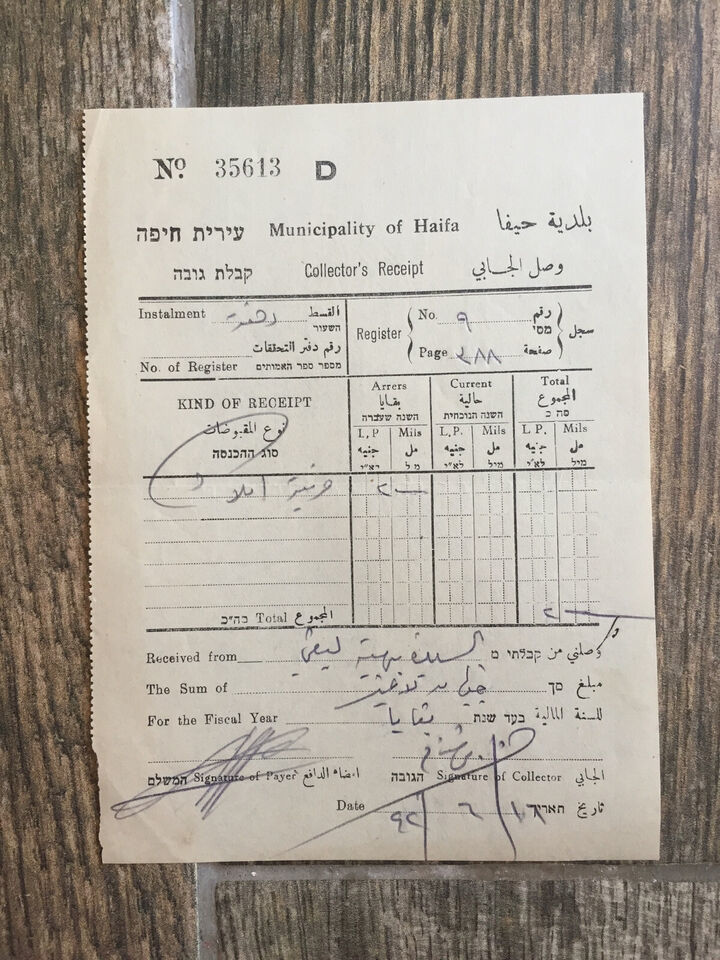 Nº 35613 D
עירית חיפה Municipality of Haifa بلدية حيفا
קבלת גובה Collector's Receipt وصل الجابي
Instalment القسط
השעור
رقم دفتر التحققات
No. of Register מספר ספר האמותים
Register No. ٩ رقم מס' سجل
Page ٢٨٨ صفحة
KIND OF RECEIPT
نوع المقبوضات
סוג ההכנסה
Arrers Current Total
بقايا حالية المجموع
השנה שעברה השנה הנוכחית סה כ
L.P Mils L.P. Mils L P. Mils
جنيه مل جنيه مل جنيه مل
לא"י מ ל לא"י מיל לא"י מיל
ضريبة املاك ٢—
בה"כ Total المجموع ٢—
Received from السيدة بهية קבלתי מ وصلني من
The Sum of סך مبلغ
For the Fiscal Year بقايا בעד שנת للسنة المالية
המשלם Signature of Payer امضاء الدافع הגובה Signature of Collector الجابي
Date ١٦/٦/٩٤٢ תאריך تاريخ